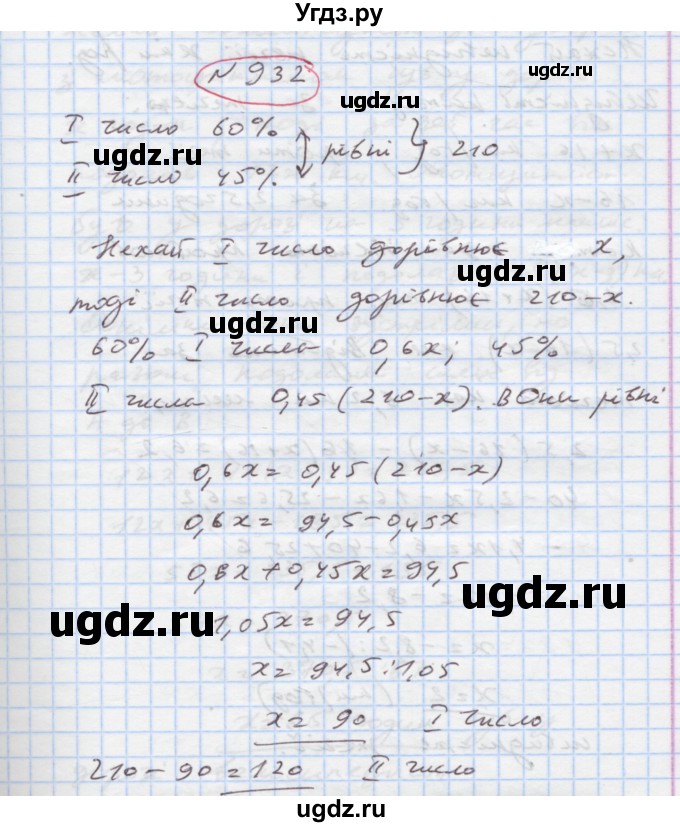 Угдз.ру
N 932
I число 60%
} рівні } 210
II число 45%
Нехай I число дорівнює x,
тоді II число дорівнює 210-x.
60% I числа 0,6x; 45%
II числа 0,45(210-x). Вони рівні
0,6x = 0,45(210-x)
0,6x = 94,5-0,45x
0,6x+0,45x=94,5
1,05x=94,5
x= 94,5:1,05
x= 90 I число
210-90=120 II число
ugdz.ru
ugdz.ru
ugdz.ru
ugdz.ru
ugdz.ru
ugdz.ru
ugdz.ru
ugdz.ru
ugdz.ru
ugdz.ru
ugdz.ru
ugdz.ru